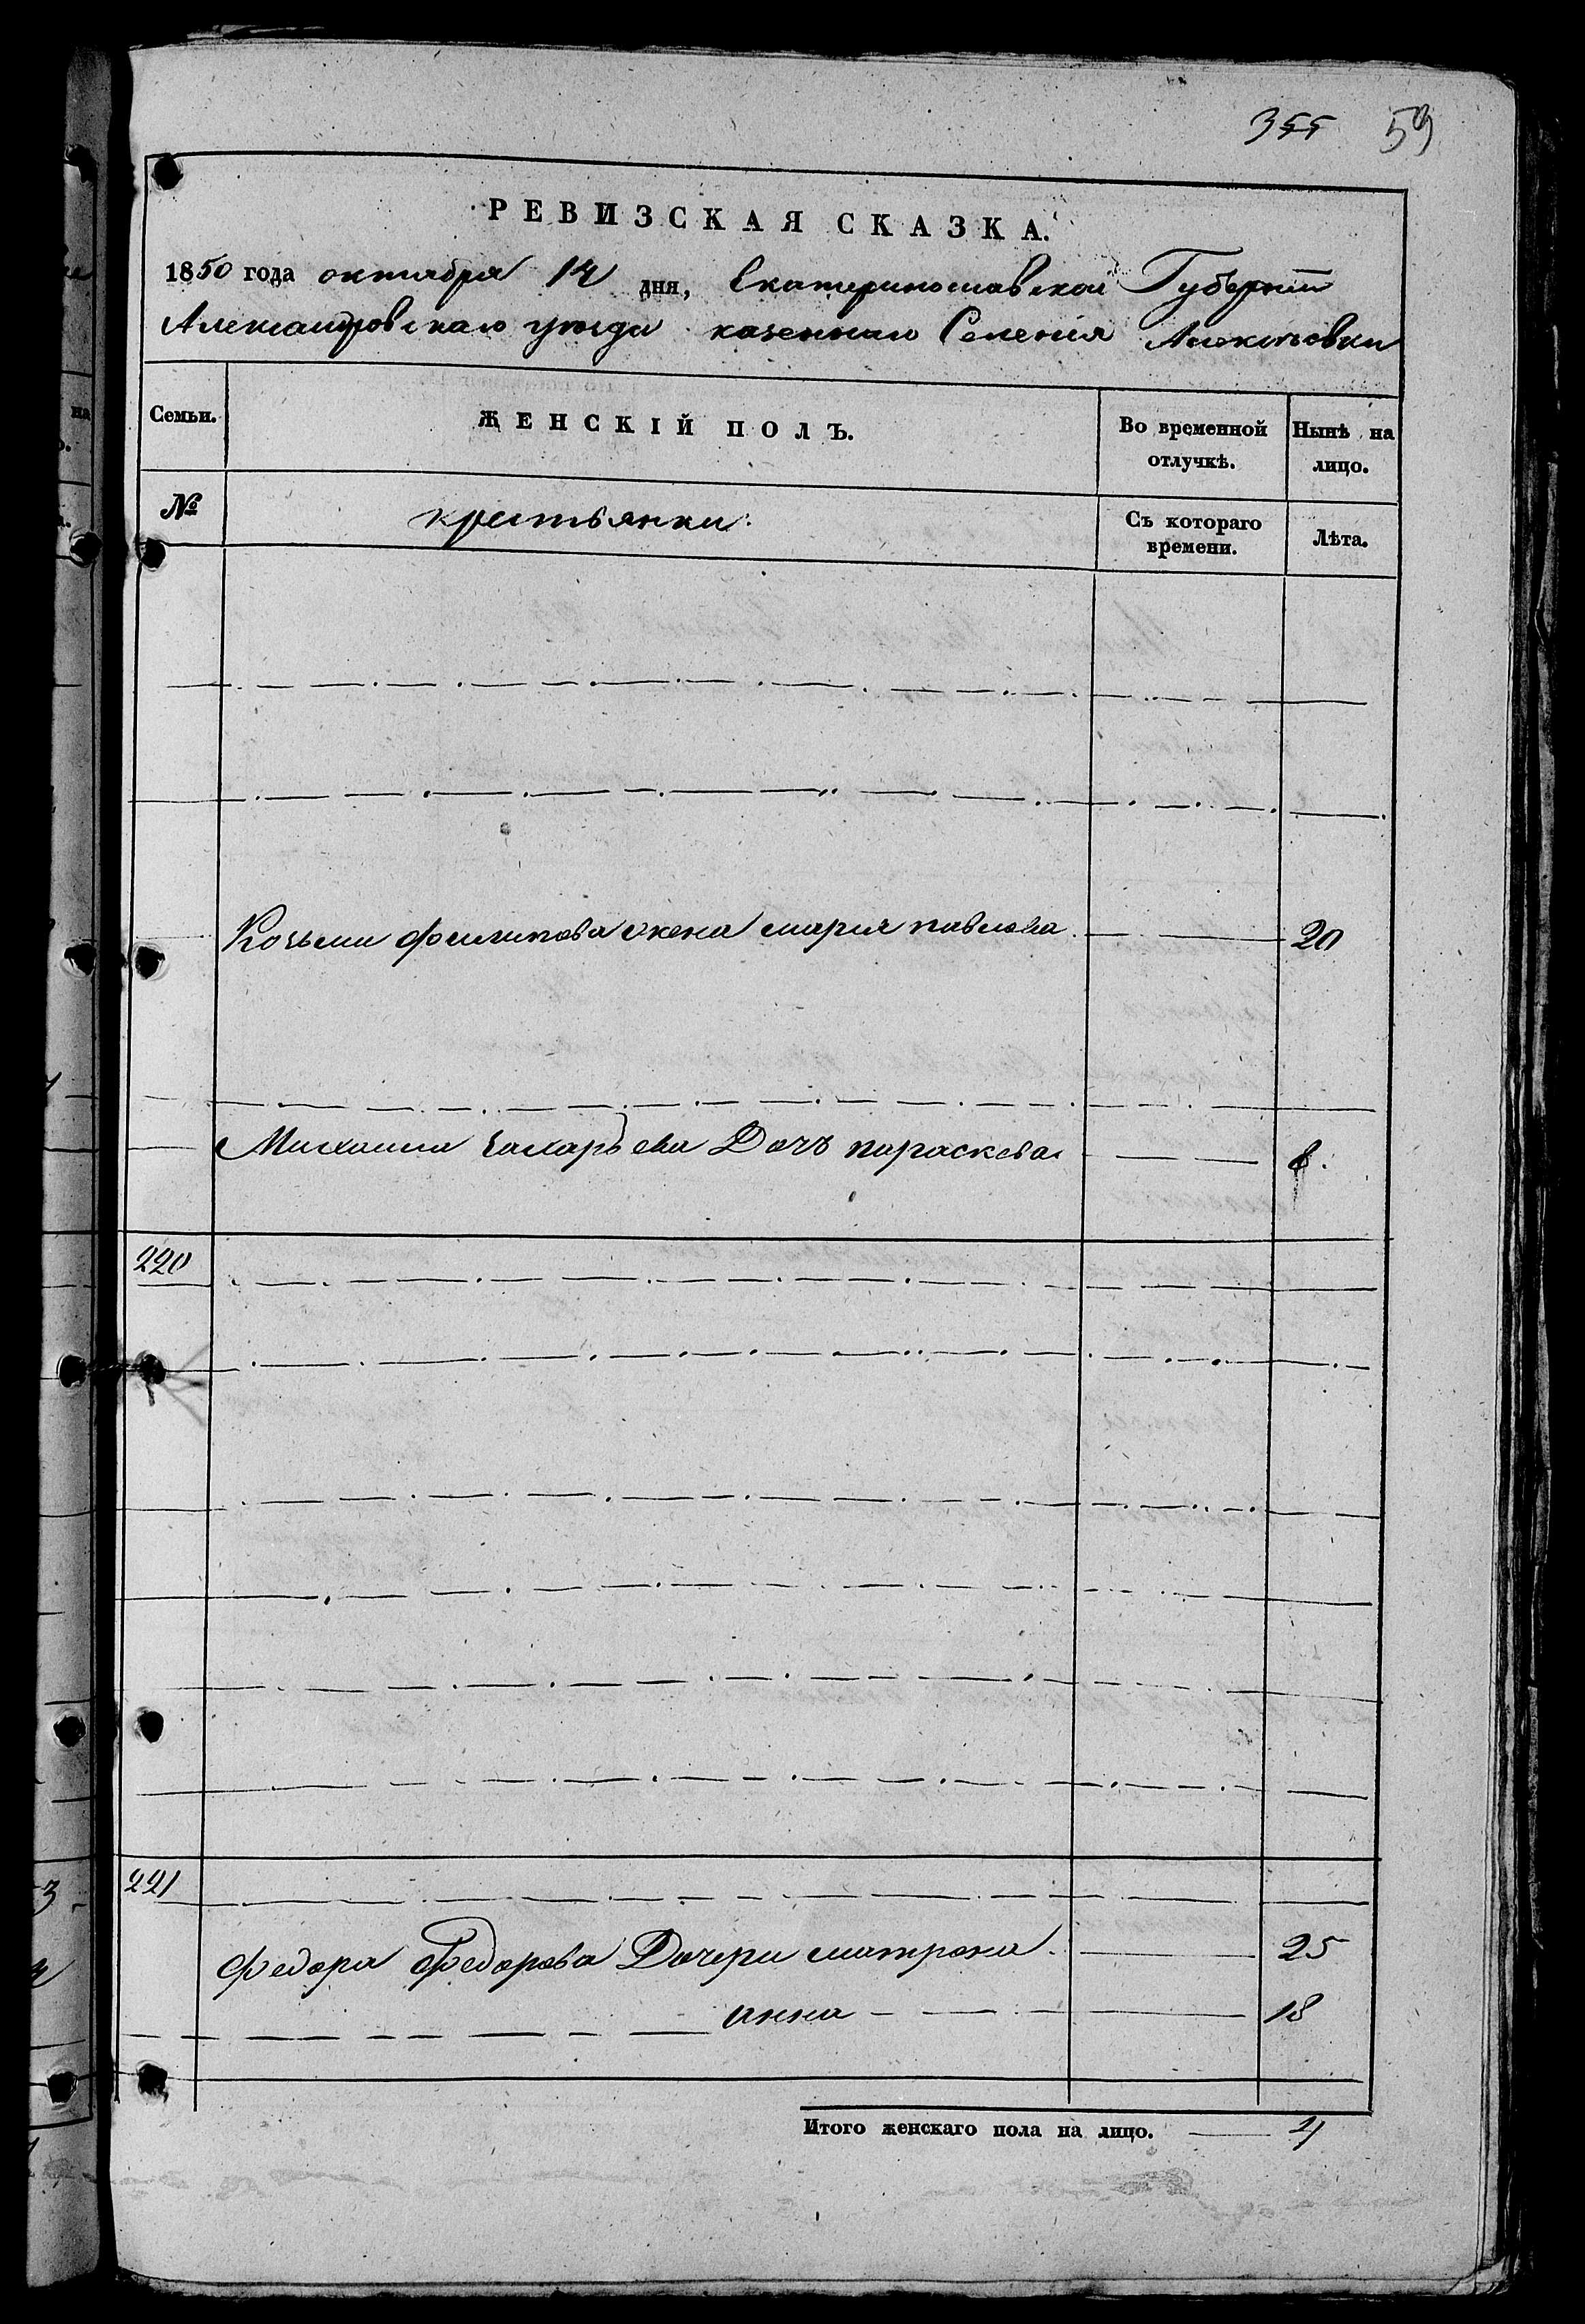 355 59
РЕВИЗСКАЯ СКАЗКА.
1850 года октября 14 дня, Екатеринославской Губернии
Александровскаго уезда казеннаго Селенія Алексеевки
Семьи. ЖЕНСКІЙ ПОЛЪ. Во временной отлучкѣ. Нынѣ на лицо.
№ крестьянки. Съ котораго времени. Лѣта.
Козьмы Филипова жена марія павлова 20
Михаила Захарьева Дочь параскева
220
221
Федора Федорова Дочери матрона 25
анна 18
Итого женскаго пола на лицо. 4